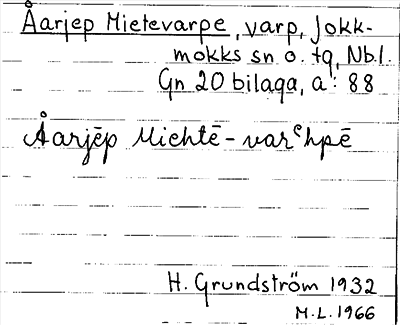 Åarjep Mietevarpe, varp, Jokk-
mokks sn o. tg, Nbl.
Gn 20 bilaga, a: 88
Åarjēp Miehtē-varᵉhpē
H. Grundström 1932
M.L. 1966